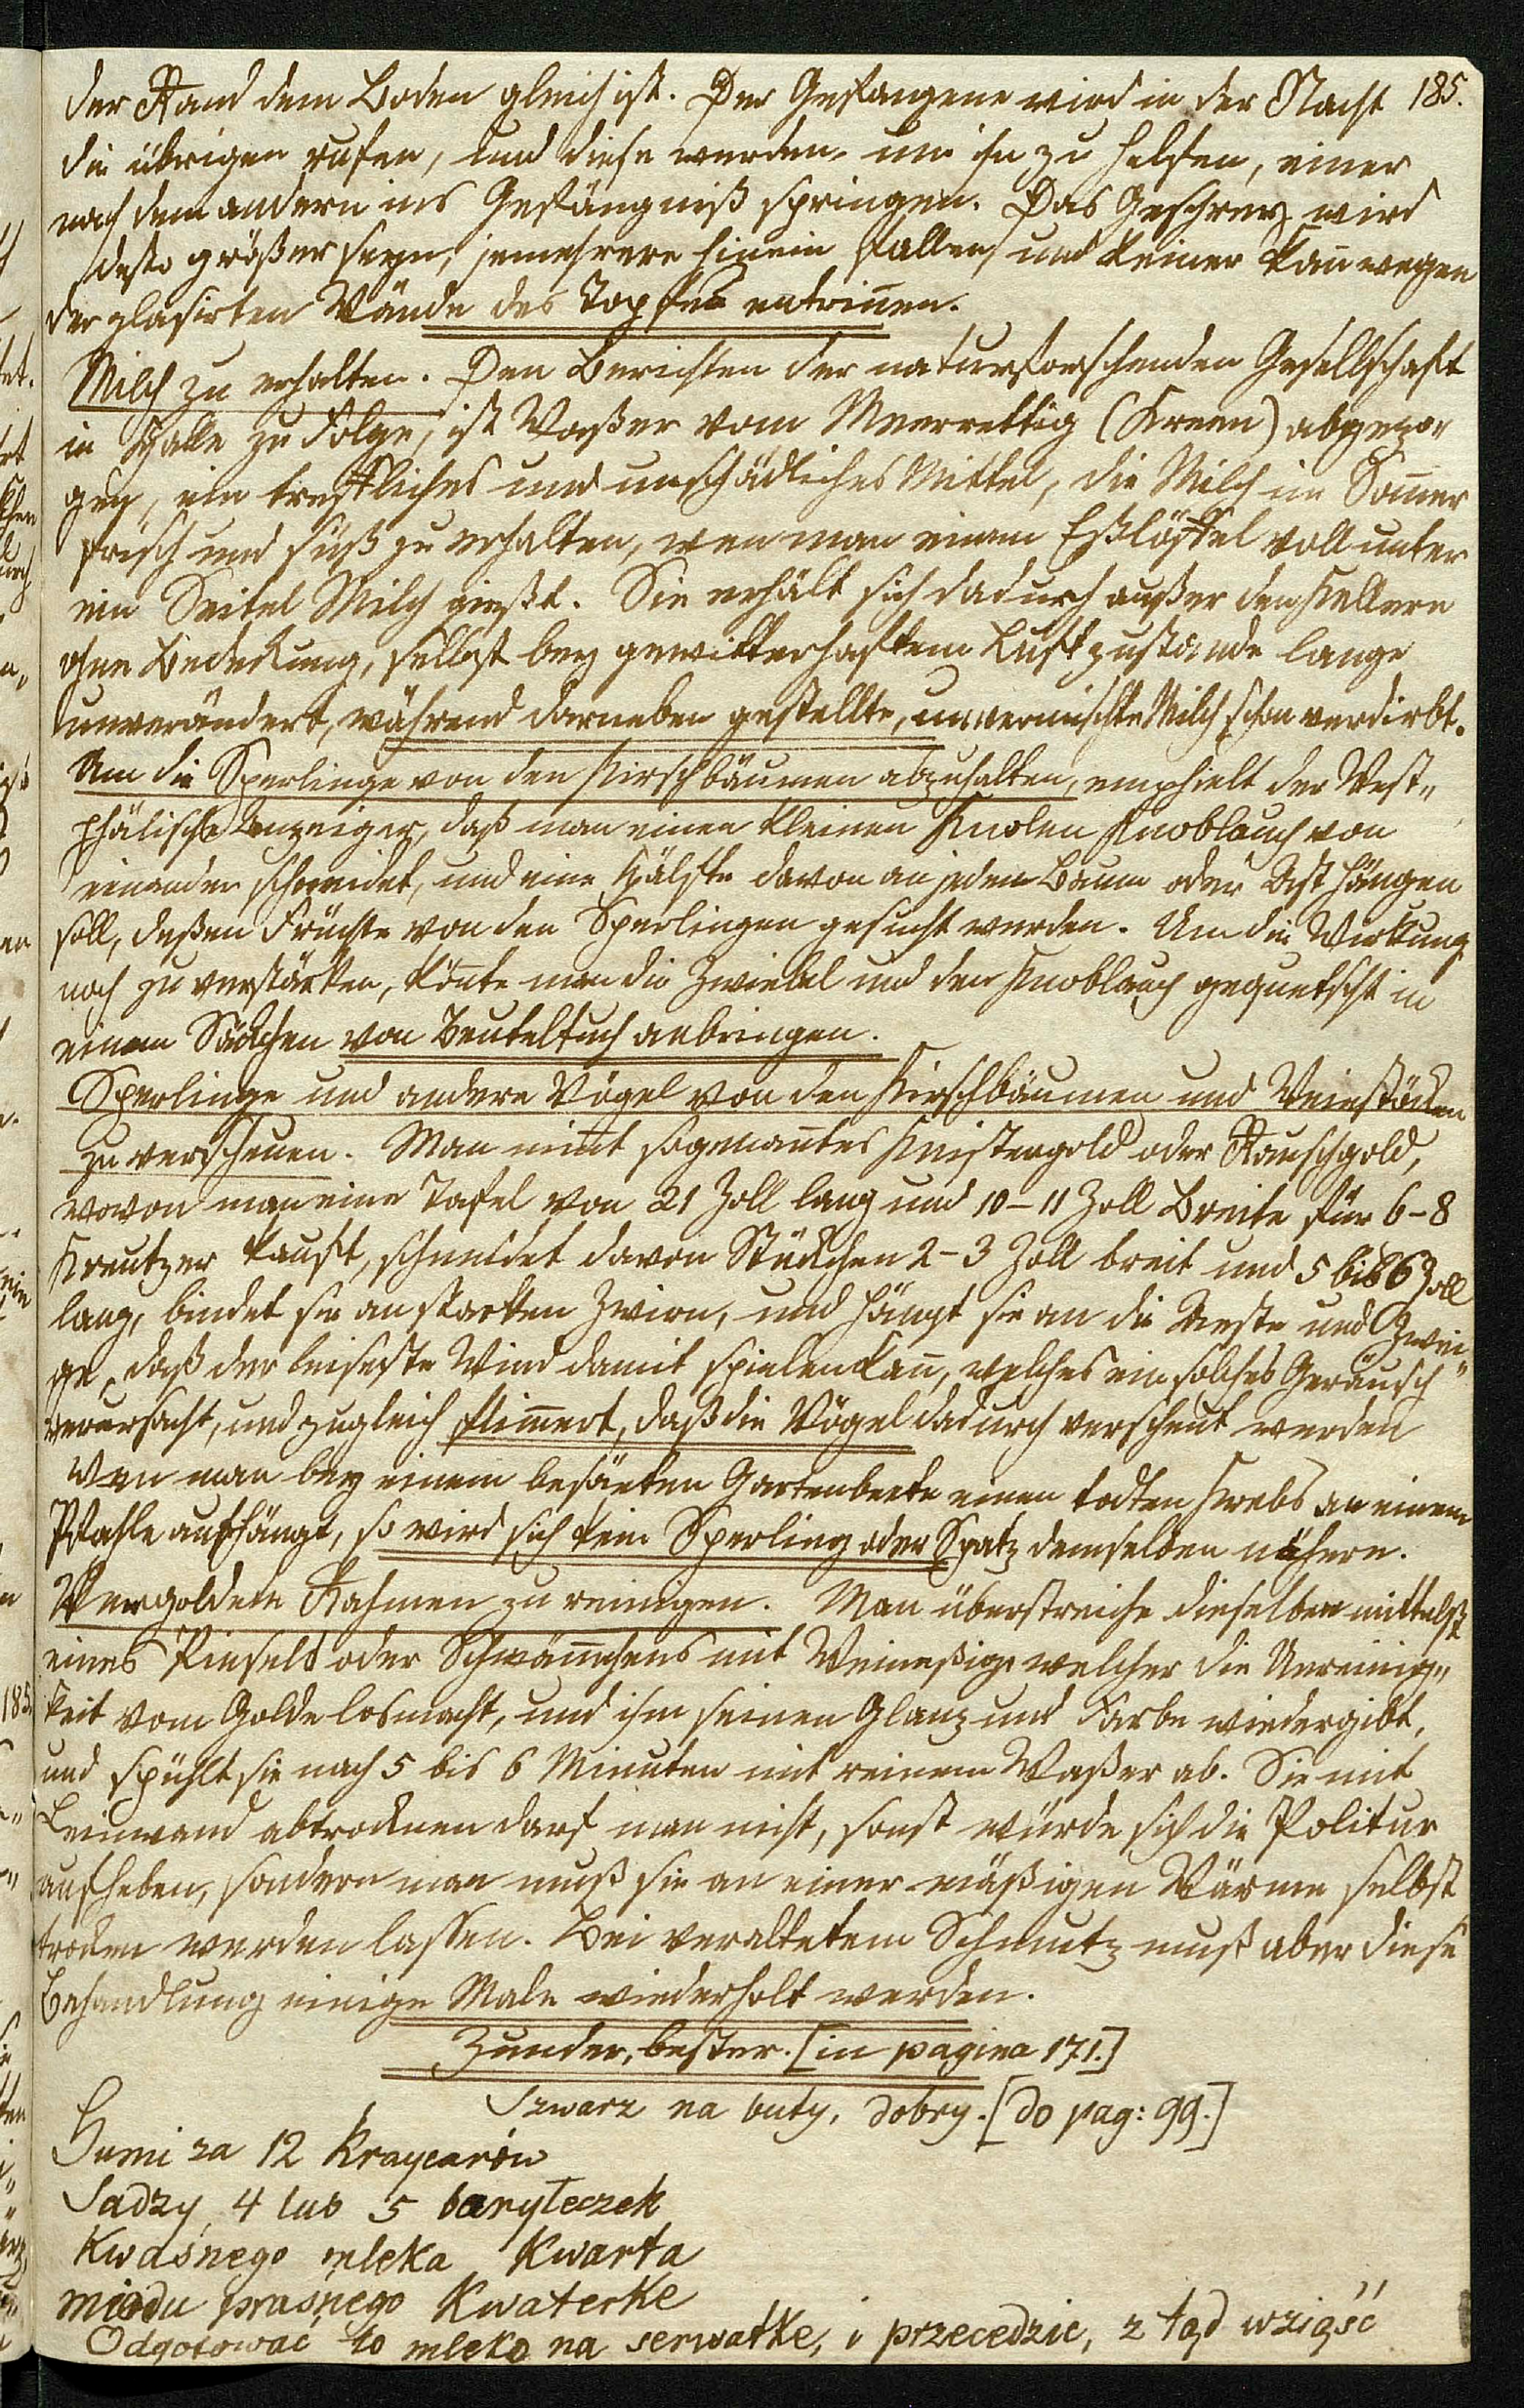 der Rand dem Boden gleich ist. Der Gefangene wird in der Nacht 185.
die übrigen rufen, und diese werden, um ihn zu helfen, einer
nach dem andern ins Gefängniß springen. Das Geschrey wird
desto größer seyn, jemehrere hinein fallen, und keiner kan̄ wegen
der glasirten Wände des Topfes entrin̄en.
Milch zu erhalten. Den Berichten der naturforschenden Gesellschaft
in Halle zu Folge, ist Waßer vom Meerrettig (Kreen) abgezo„
gen, ein treffliches und unschädliches Mittel, die Milch im Som̄er
frisch und süß zu erhalten, wen man einem Eßlöffel voll unter
ein Seitel Milch gießt. Sie erhält sich dadurch außer den Kellern
ohne Bedeckung, selbst bey gewitterhaftem Luftzustande lange
unverändert, während darneben gestellte, unvermischte Milch schon verdirbt.
Um die Sperlinge von den Kirschbäumen abzuhalten, emphielt der West„
phälische Anzeiger, daß man einen kleinen Knolen Knoblauch von
einander schneidet, und eine Hälfte davon an jeden Baum oder Ast hängen
soll, deßen Früchte von den Sperlingen gesucht werden. Um die Wirkung
noch zu verstärken, kön̄te man die Zwiebel und den Knoblauch gequetscht in
einem Säckchen von Beuteltuch anbringen.
Sperlinge und andere Vögel von den Kirschbäumen und Weinstöcken
zu verscheuen. Man nim̄t sogenan̄tes Knistergold oder Rauschgold,
wovon man eine Tafel von 21 Zoll lang und 10–11 Zoll Breite für 6–8
Kreutzer kauft, schneidet davon Stückchen 2–3 Zoll breit und 5 bis 6 Zoll
lang, bindet sie an starken Zwirn, und hängt sie an die Aeste und Zwei„
ge, daß der leiseste Wind damit spielen kan̄, welches ein solches Geräusch
verursacht, und zugleich flim̄ert, daß die Vögel dadurch verscheut werden
Wen man bey einem besäeten Gartenbeete einen todten Krebs an einem
Pfahle aufhängt, so wird sich kein Sperling oder Spatz demselben nähern.
Vergoldete Rahmen zu reinigen. Man überstreiche dieselben mittelst
eines Pinsels oder Schwäm̄chens mit Weineßig, welcher die Unreinig„
keit vom Golde losmacht, und ihm seinen Glanz und Farbe wiedergibt,
und spühlt sie nach 5 bis 6 Minuten mit reinem Waßer ab. Sie mit
Leinwand abtrocknen darf man nicht, sonst würde sich die Politur
aufheben, sondern man muß sie an einer mäßigen Wärme selbst
trocken werden lassen. Bei veraltetem Schmutz muß aber diese
Behandlung einige Male wiederholt werden.
Zunder, bester. [in pagina 171.]
Szwarz na buty, dobry. [do pag: 99.]
Gumi za 12 Kraycarów
Sadzy, 4 lub 5 baryłeczek
Kwaśnego mleka Kwarta
miodu praśnego Kwaterke
Odgotować to mleko na serwatke, i przecedzić, z tąd wziąść